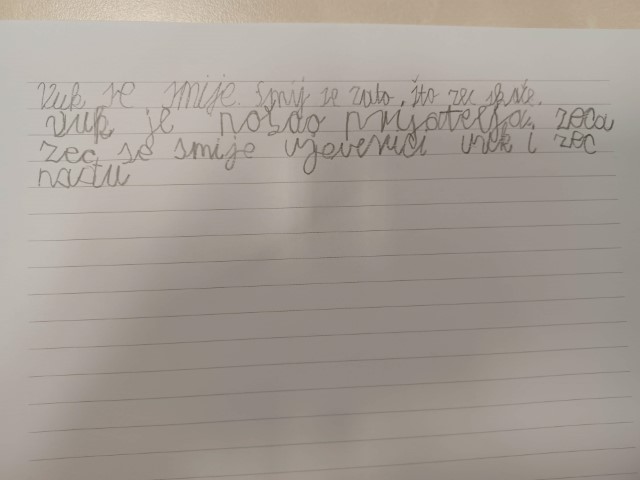 Vuk se smije. smij se zato, što zec skače.
Vuk je nošao prijatelja. zeca
zec se smije vjeverica vuk i zec